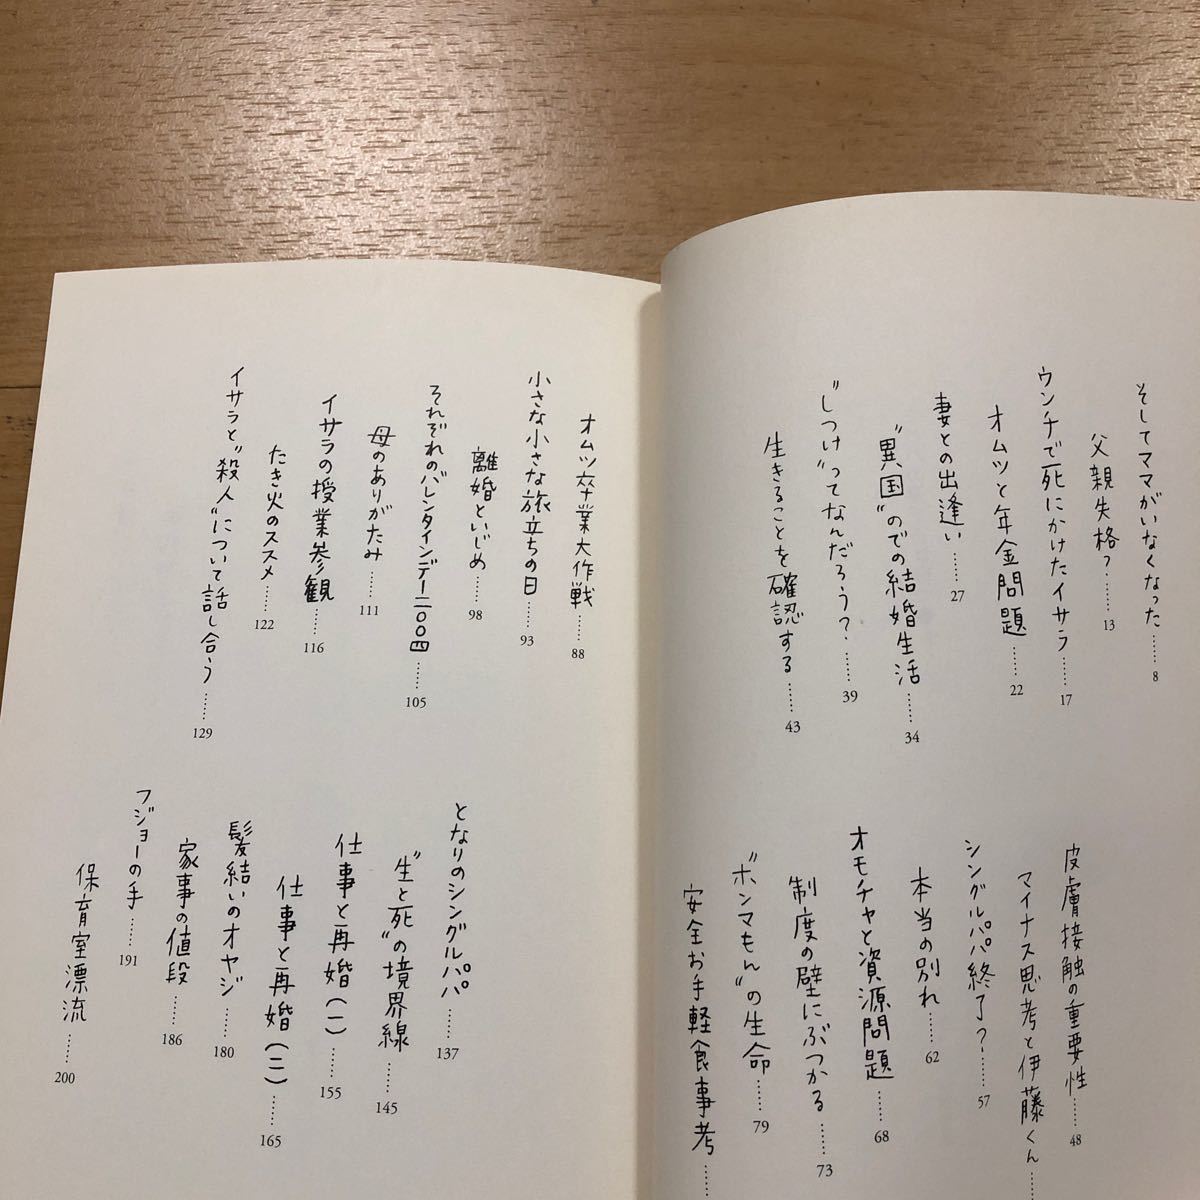 そしてママがいなくなった……8
父親失格？……13
ウンチで死にかけたイサラ……17
オムツと年金問題……22
妻との出逢い……27
“異国”のでの結婚生活……34
“しつけ”ってなんだろう？……39
生きることを確認する……43
皮膚接触の重要性……48
マイナス思考と伊藤くん……
シングルパパ終了？……57
本当の別れ……62
オモチャと資源問題……68
制度の壁にぶつかる……73
“ホンマもん”の生命……79
安全お手軽食事考……
オムツ卒業大作戦……88
小さな小さな旅立ちの日……93
離婚といじめ……98
それぞれのバレンタインデー二〇〇四……105
母のありがたみ……111
イサラの授業参観……116
たき火のススメ……122
イサラと“殺人”について話し合う……129
となりのシングルパパ……137
“生と死”の境界線……145
仕事と再婚（一）……155
仕事と再婚（二）……165
髪結いのオヤジ……180
家事の値段……186
フジョーの手……191
保育室漂流……200